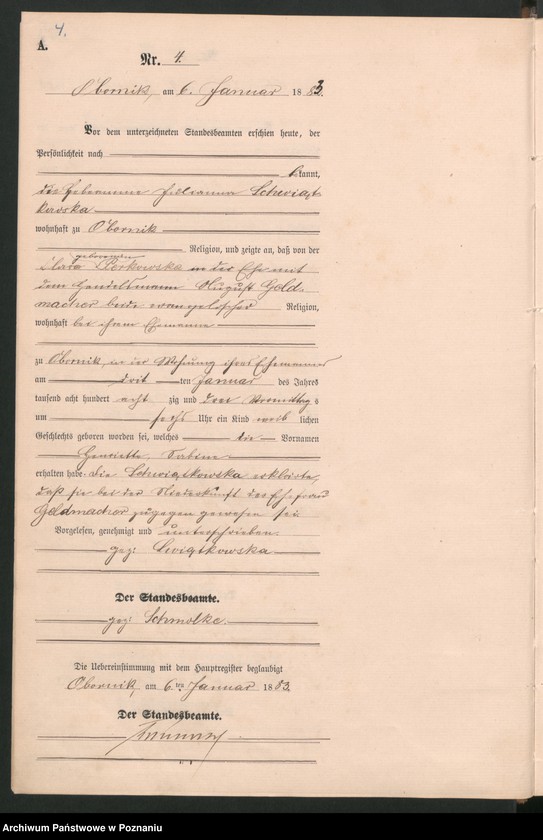 4.
A.
Nr. 4.
Obornik, am 6. Januar 1883.
Vor dem unterzeichneten Standesbeamten erschien heute, der
Persönlichkeit nach
bekannt,
die Hebamme Schwiąt-
kowska
wohnhaft zu Obornik
Religion, und zeigte an, daß von der
geborenen
Clara Perkowska in der Ehe mit
dem Handelsmann August Geld-
macher beide evangelischer Religion,
wohnhaft bei ihrem Ehemanne
zu Obornik, in der Wohnung ihres Ehemannes
am dritten Januar des Jahres
tausend acht hundert acht zig und drei Vormittags
um sechs Uhr ein Kind weiblichen
Geschlechts geboren worden sei, welches die Vornamen
Henriette, Sabine
erhalten habe. die Schwiątkowska erklärte,
daß sie bei der Niederkunft der Ehefrau
Geldmacher zugegen gewesen sei
Vorgelesen, genehmigt und unterschrieben.
gez: Swiątkowska
Der Standesbeamte.
gez: Schmolke.
Die Uebereinstimmung mit dem Hauptregister beglaubigt
Obornik, am 6ten Januar 1883.
Der Standesbeamte.
Archiwum Państwowe w Poznaniu